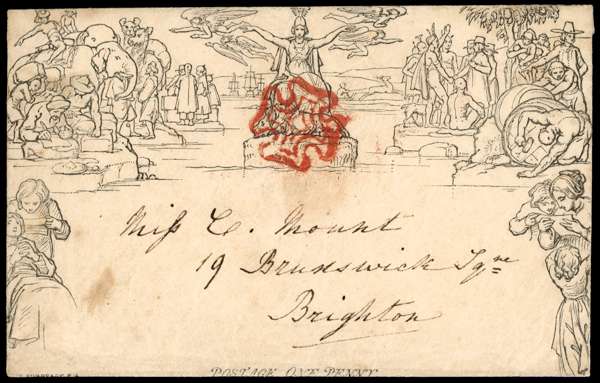 Miss C. Mount
19 Brunswick Sqre
Brighton
POSTAGE ONE PENNY.